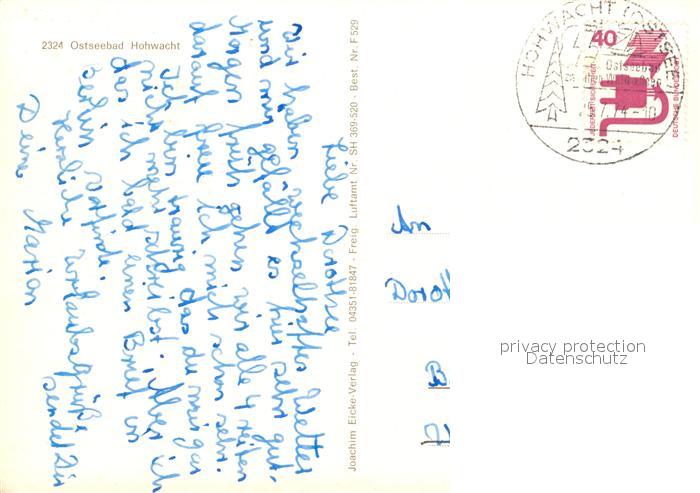 2324 Ostseebad Hohwacht
Liebe Dorothee
Wir haben wechselhaftes Wetter
und mir gefällt es hier sehr gut.
Morgen früh gehen wir alle 4 reiten
darauf freu ich mich schon sehr.
Ich bin traurig das du mir gar
nicht mehr schreibst. Aber ich
das ich bald einen Brief in
Berlin vorfinde.
Herzliche Urlaubsgrüße
sendet Dir
Deine Marion
Joachim Eicke-Verlag - Tel. 04351-81847 - Freig. Luftamt Nr. SH 369-520 - Best. Nr. F 529
HOHWACHT (OSTSEE)
Ostseebad
74-10
2324
40
JEDERZEIT SICHERHEIT
DEUTSCHE BUNDESPOST
An
Doroth
B
privacy protection
Datenschutz